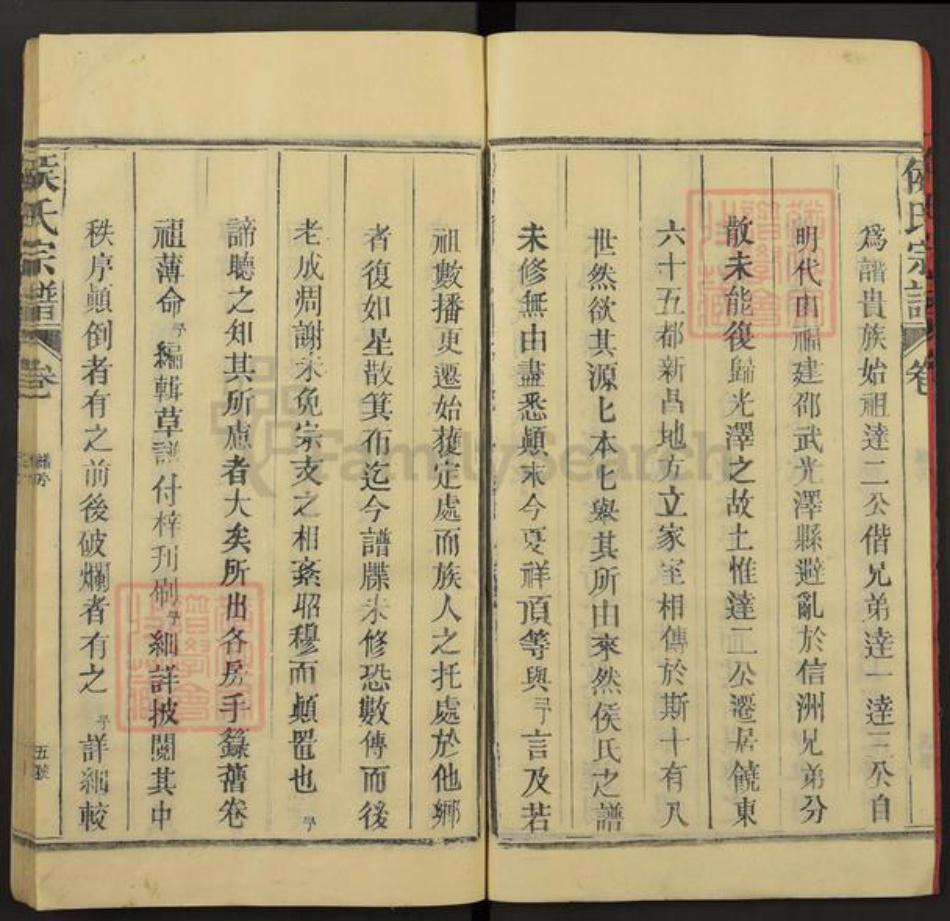 侯氏宗譜 卷
爲諧貴族始祖達二公偕兄弟達一達三公自
明代由福建邵武光澤縣避亂於信洲兄弟分
散未能復歸光澤之故土惟達二公遷居饒東
六十五都新昌地方立家室相傳於斯十有八
世然欲其源匕本匕舉其所由來然侯氏之譜
未修無由盡悉顛末今夏祥頂等與予言及若
祖數播更遷始獲定處而族人之托處於他鄉
者復如星散箕佈迄今譜牒未修恐數傳而後
老成凋謝未免宗支之相紊昭穆而顛置也予
諦聽之知其所慮者大矣所出各房手錄舊卷
祖薄命予編輯草譜付梓刋刷予細詳披閱其中
秩序顛倒者有之前後破爛者有之予詳細較
侯氏宗譜 卷
五號
FamilySearch